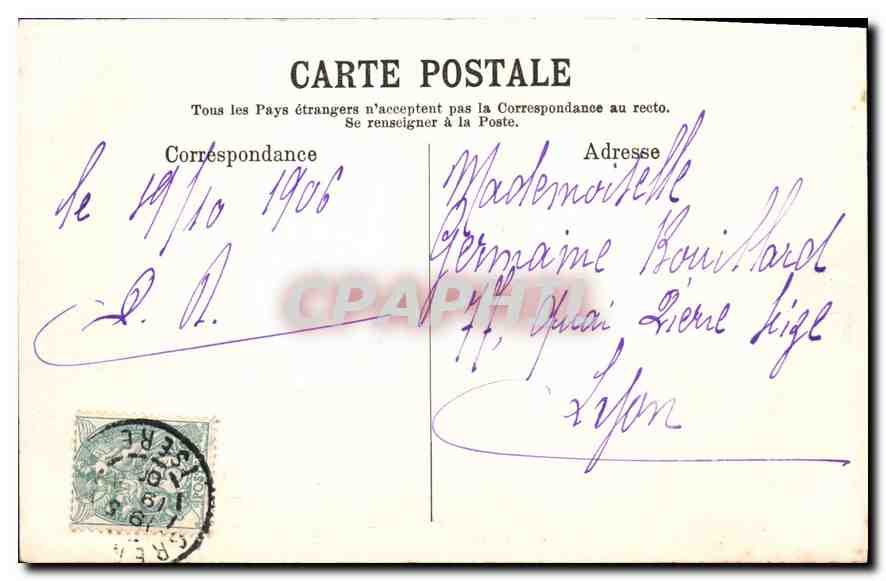 CARTE POSTALE
Tous les Pays étrangers n'acceptent pas la Correspondance au recto.
Se renseigner à la Poste.
Correspondance
le 19/10 1906
Adresse
Mademoiselle
Germaine Bouillard
77, Quai Pierre Size
Lyon
CPAPHIL
ISERE